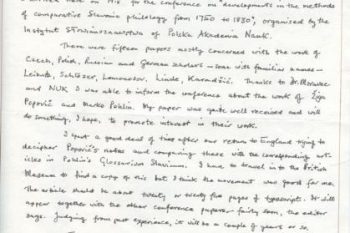 I arrived here on 14th for the conference on "developments in the methods
of comparative Slavonic philology from 1750 to 1850", organised by the
Instytut Słowianoznawstwa of Polska Akademia Nauk.
There were fifteen papers mostly concerned with the work of
Czech, Polish, Russian and German scholars – some with familiar names –
Leibnitz, Schlözer, Lomonosov, Linde, Karadžić. Thanks to Dr.
and NUK I was able to inform the conference about the work of Žiga
Popović and Marko Pohlin. My paper was quite well received and will
do something, I hope, to promote interest in their work.
I spent a good deal of time after our return to England trying to
decipher Popović's notes and comparing these with the corresponding art-
icles in Pohlin's Glossarium Slavicum. I had to travel in to the British
Museum to find a copy of this but I think the movement was good for me.
The article should be about twenty or twenty five pages of typescript. It will
appear together with the other conference papers – fairly soon, the editor
says. Judging from past experience, it will be a couple of years or so.